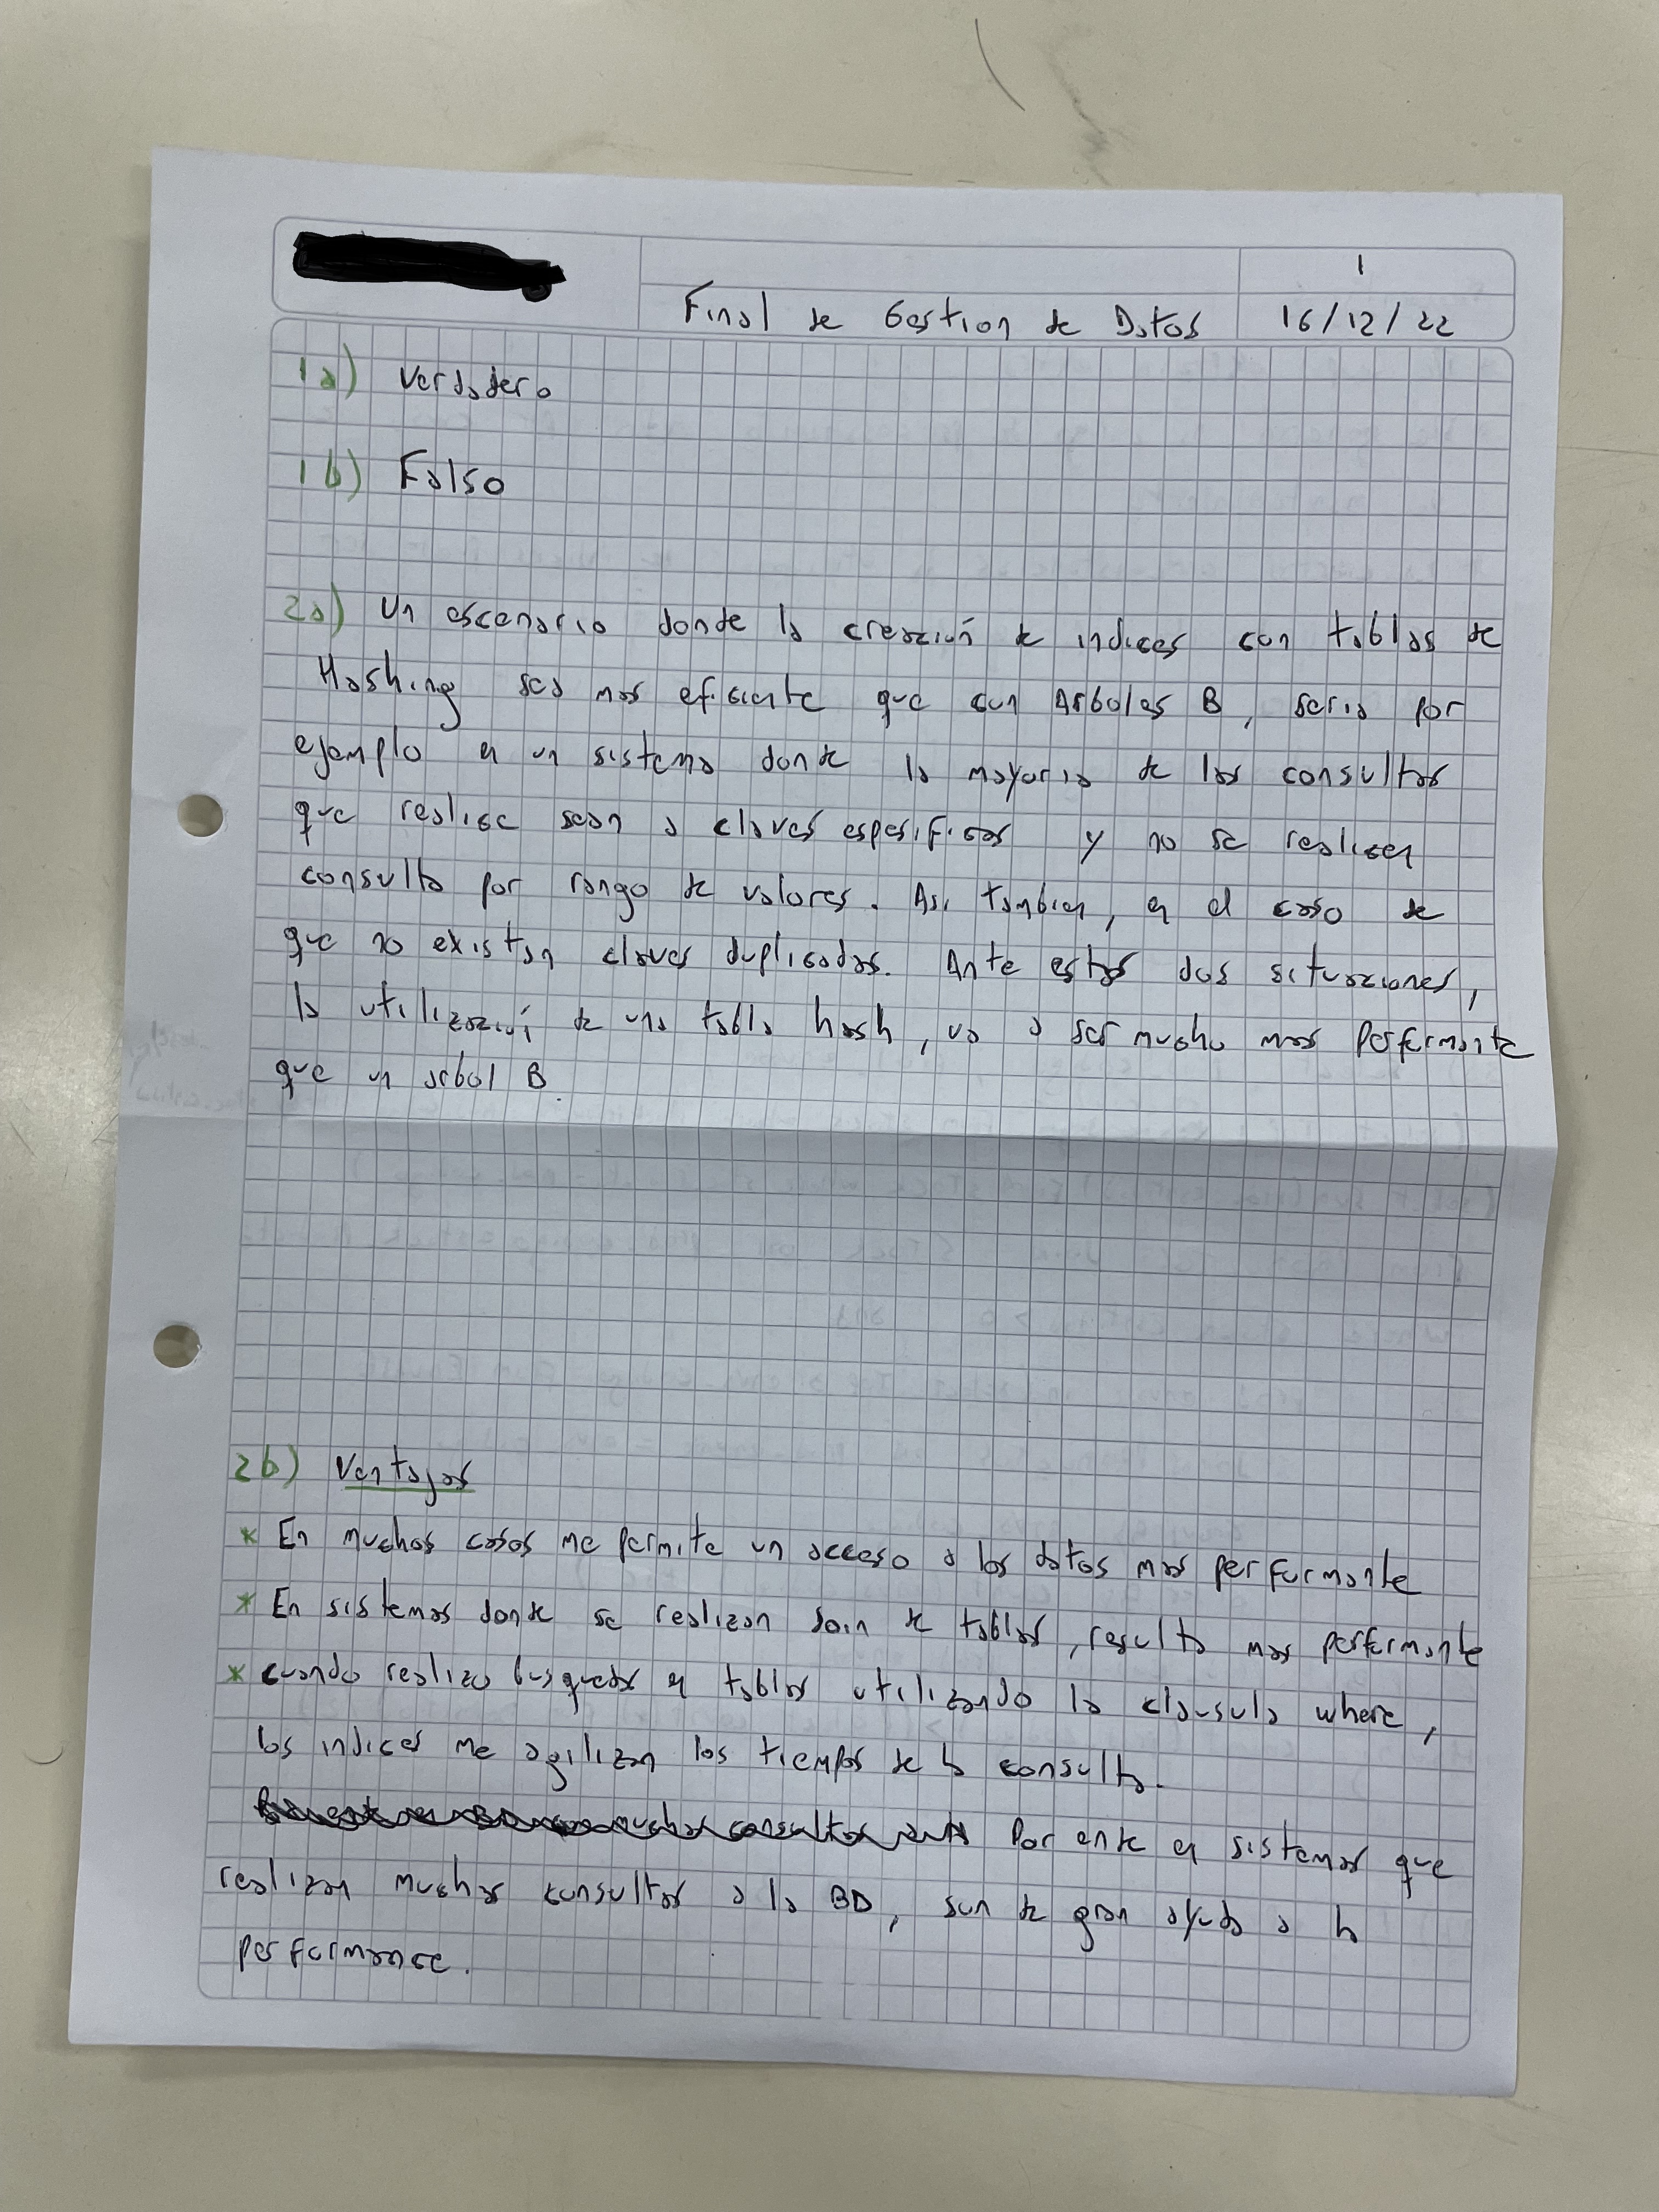 1
Final de Gestion de Datos
16/12/22
1a) Verdadero
1b) Falso
2a) Un escenario donde la creación de indices con tablas de
Hashing sea mas eficiente que con Arboles B, seria por
ejemplo en un sistema donde la mayoria de las consultas
que realice sean a claves espesificas y no se realicen
consulta por rango de valores. Asi tambien, en el caso de
que no existan claves duplicadas. Ante estas dos situaciones,
la utilización de una tabla hash, va a ser mucho mas performante
que un arbol B.
2b) Ventajas
* En muchas casos me permite un acceso a los datos mas performante
* En sistemas donde se realizan Join de tablas, resulta mas performante
* cuando realizo busquedas en tablas utilizando la clausula where,
los indices me agilizan los tiempos de la consulta.
Por ende en sistemas que
realizan muchas consultas a la BD, son de gran ayuda a la
performance.